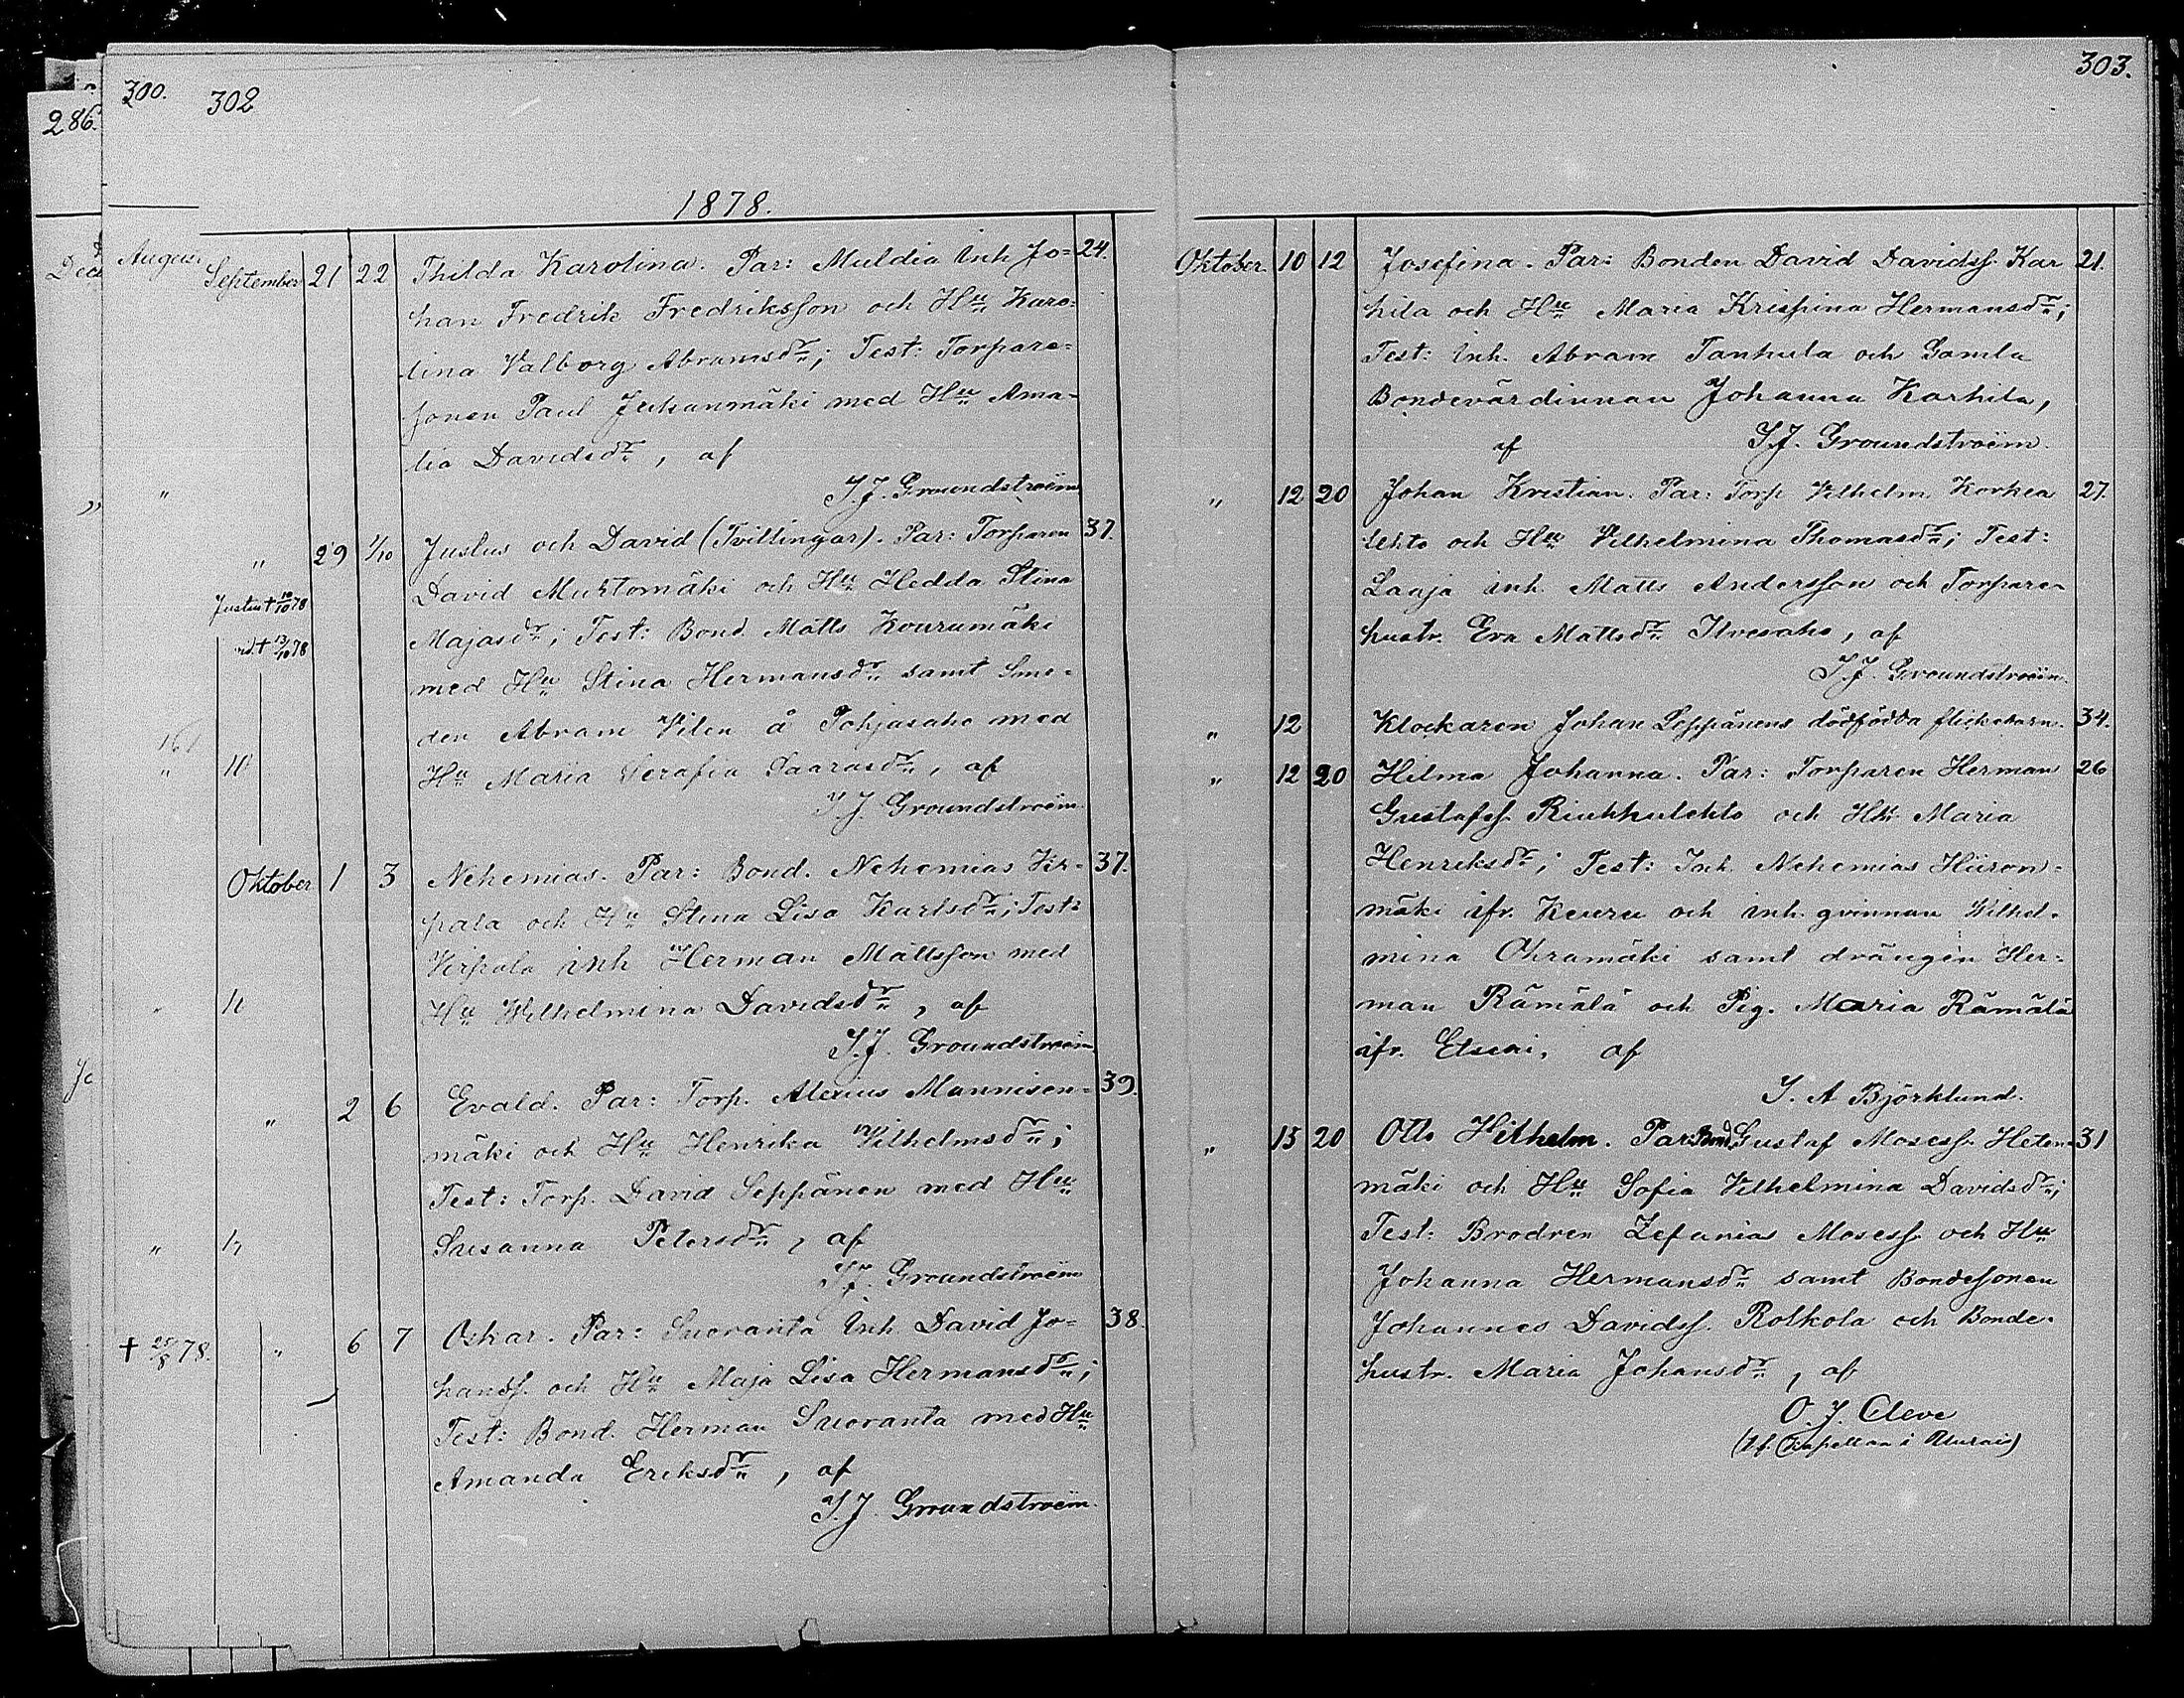 300.
302
286.
1878.
August
September 21 22 Thilda Karolina. Par: Muldia Inh Jo= 24.
han Fredrik Fredriksson och Hu Karo=
lina Valborg Abramsdr; Test: Torpare=
sonen Paul Juhanmäki med Hu Ama=
lia Davidsdr, af
S. J. Groundstroëm
" 29 1/10 Justus och David (Tvillingar). Par: Torparen 37.
Justus + 10/10 78
David Murtomäki och Hu Hedda Stina
Majasdr; Test: Bond. Matts Kourumäki
vid. + 13/10 78
med Hu Stina Hermansdr samt Sme=
den Abram Vilen å Pohjasaho med
Hu Maria Serafia Saarasdr, af
S. J. Groundstroëm
Oktober 1 3 Nehemias. Par: Bond. Nehemias Vir= 37.
pala och Hu Stina Lisa Karlsdr; Test:
Virpala inh Herman Mattsson med
Hu Wilhelmina Davidsdr, af
S. J. Groundstroëm
" 2 6 Evald. Par: Torp. Alexius Mannisen= 39.
mäki och Hu Henrika Vilhelmsdr;
Test: Torp. David Seppänen med Hu
Susanna Petersdr, af
S. J. Groundstroëm
+ 25/8 78. " 6 7 Oskar. Par: Suoranta Inh David Jo= 38.
hanss. och Hu Maja Lisa Hermansdr;
Test: Bond. Herman Suoranta med Hu
Amanda Eriksdr, af
S. J. Groundstroëm.
303.
Oktober. 10 12 Josefina. Par: Bonden David Davidss. Kar 21.
hila och Hu Maria Krispina Hermansdr;
Test: Inh. Abram Tanhula och Gamla
Bondevärdinnan Johanna Karhila,
af S. J. Groundstroëm.
" 12 20 Johan Kristian. Par: Torp Vilhelm Korkea 27.
lehto och Hu Vilhelmina Thomasdr; Test:
Laaja inh. Matts Andersson och Torpare=
hustr. Eva Mattsdr Ilvesaho, af
S. J. Groundstroëm.
" 12 Klockaren Johan Leppänens dödfödda flickebarn. 34.
" 12 20 Hilma Johanna. Par: Torparen Herman 26
Gustafss. Riukkulehto och Hu Maria
Henriksdr; Test: Inh. Nehemias Hiiron=
mäki ifr. Keuru och inh. qvinnan Wilhel=
mina Ohramäki samt drängen Her=
man Rämälä och Pig. Maria Rämälä
ifr. Etseri, af
I. A Björklund.
" 15 20 Otto Hilhelm. Par: Bond. Gustaf Mosess. Heten= 31
mäki och Hu Sofia Vilhelmina Davidsdr;
Test: Brodren Zefanias Mosess. och Hu
Johanna Hermansdr samt Bondesonen
Johannes Davidss. Rolkola och Bonde=
hustr. Maria Johansdr, af
O. J. Cleve
(tf. Capellan i Pturais)